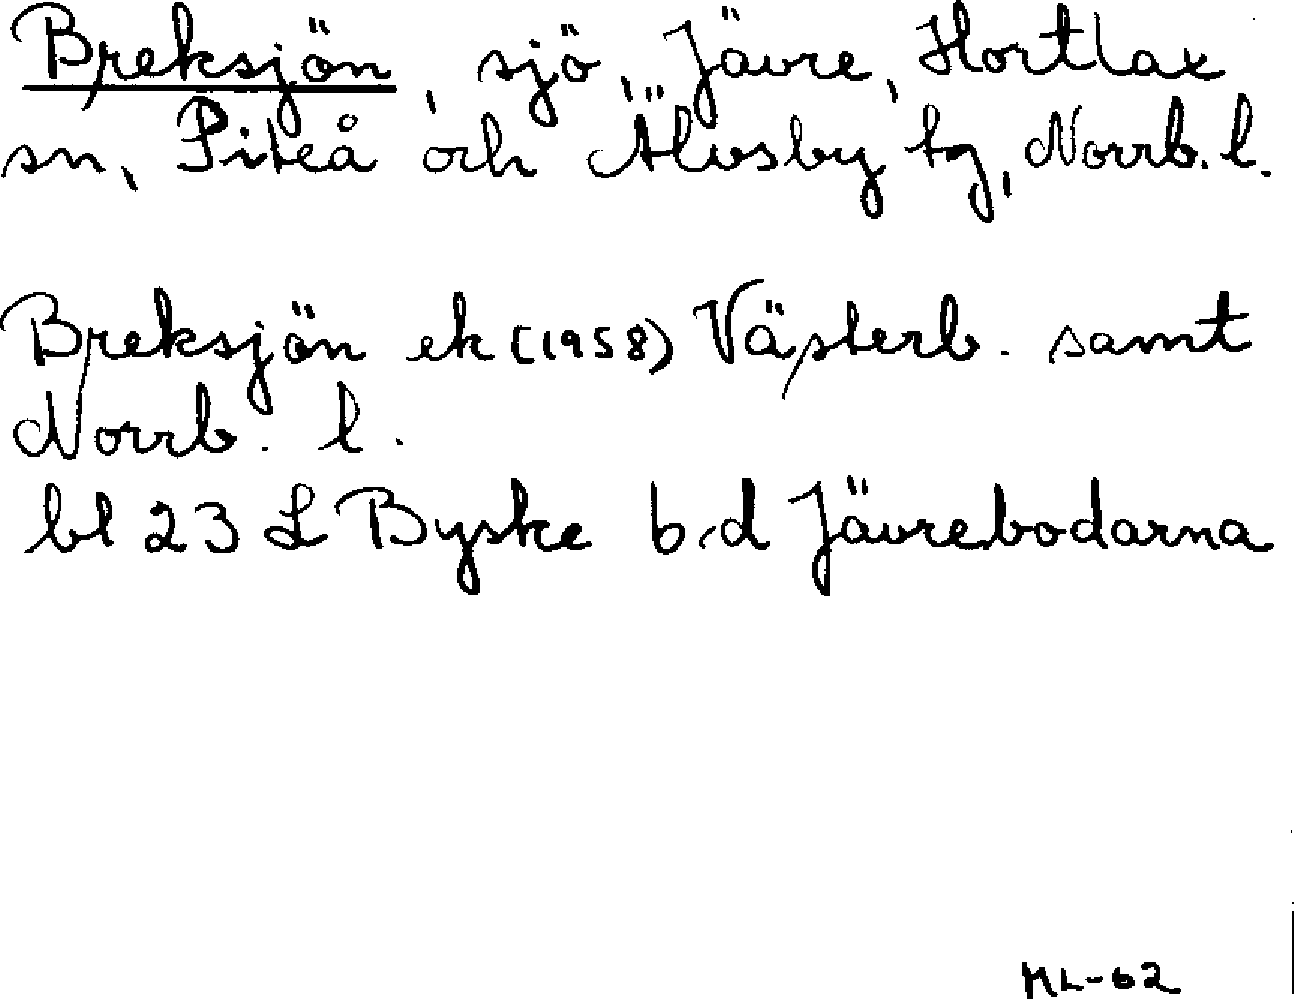 Breksjön, sjö, Jävre, Hortlax
sn, Piteå och Älvsby tg, Norrb. l.
Breksjön ek (1958) Västerb. samt
Norrb. l.
bl 23 L Byske b-d Jävrebodarna
ML-62